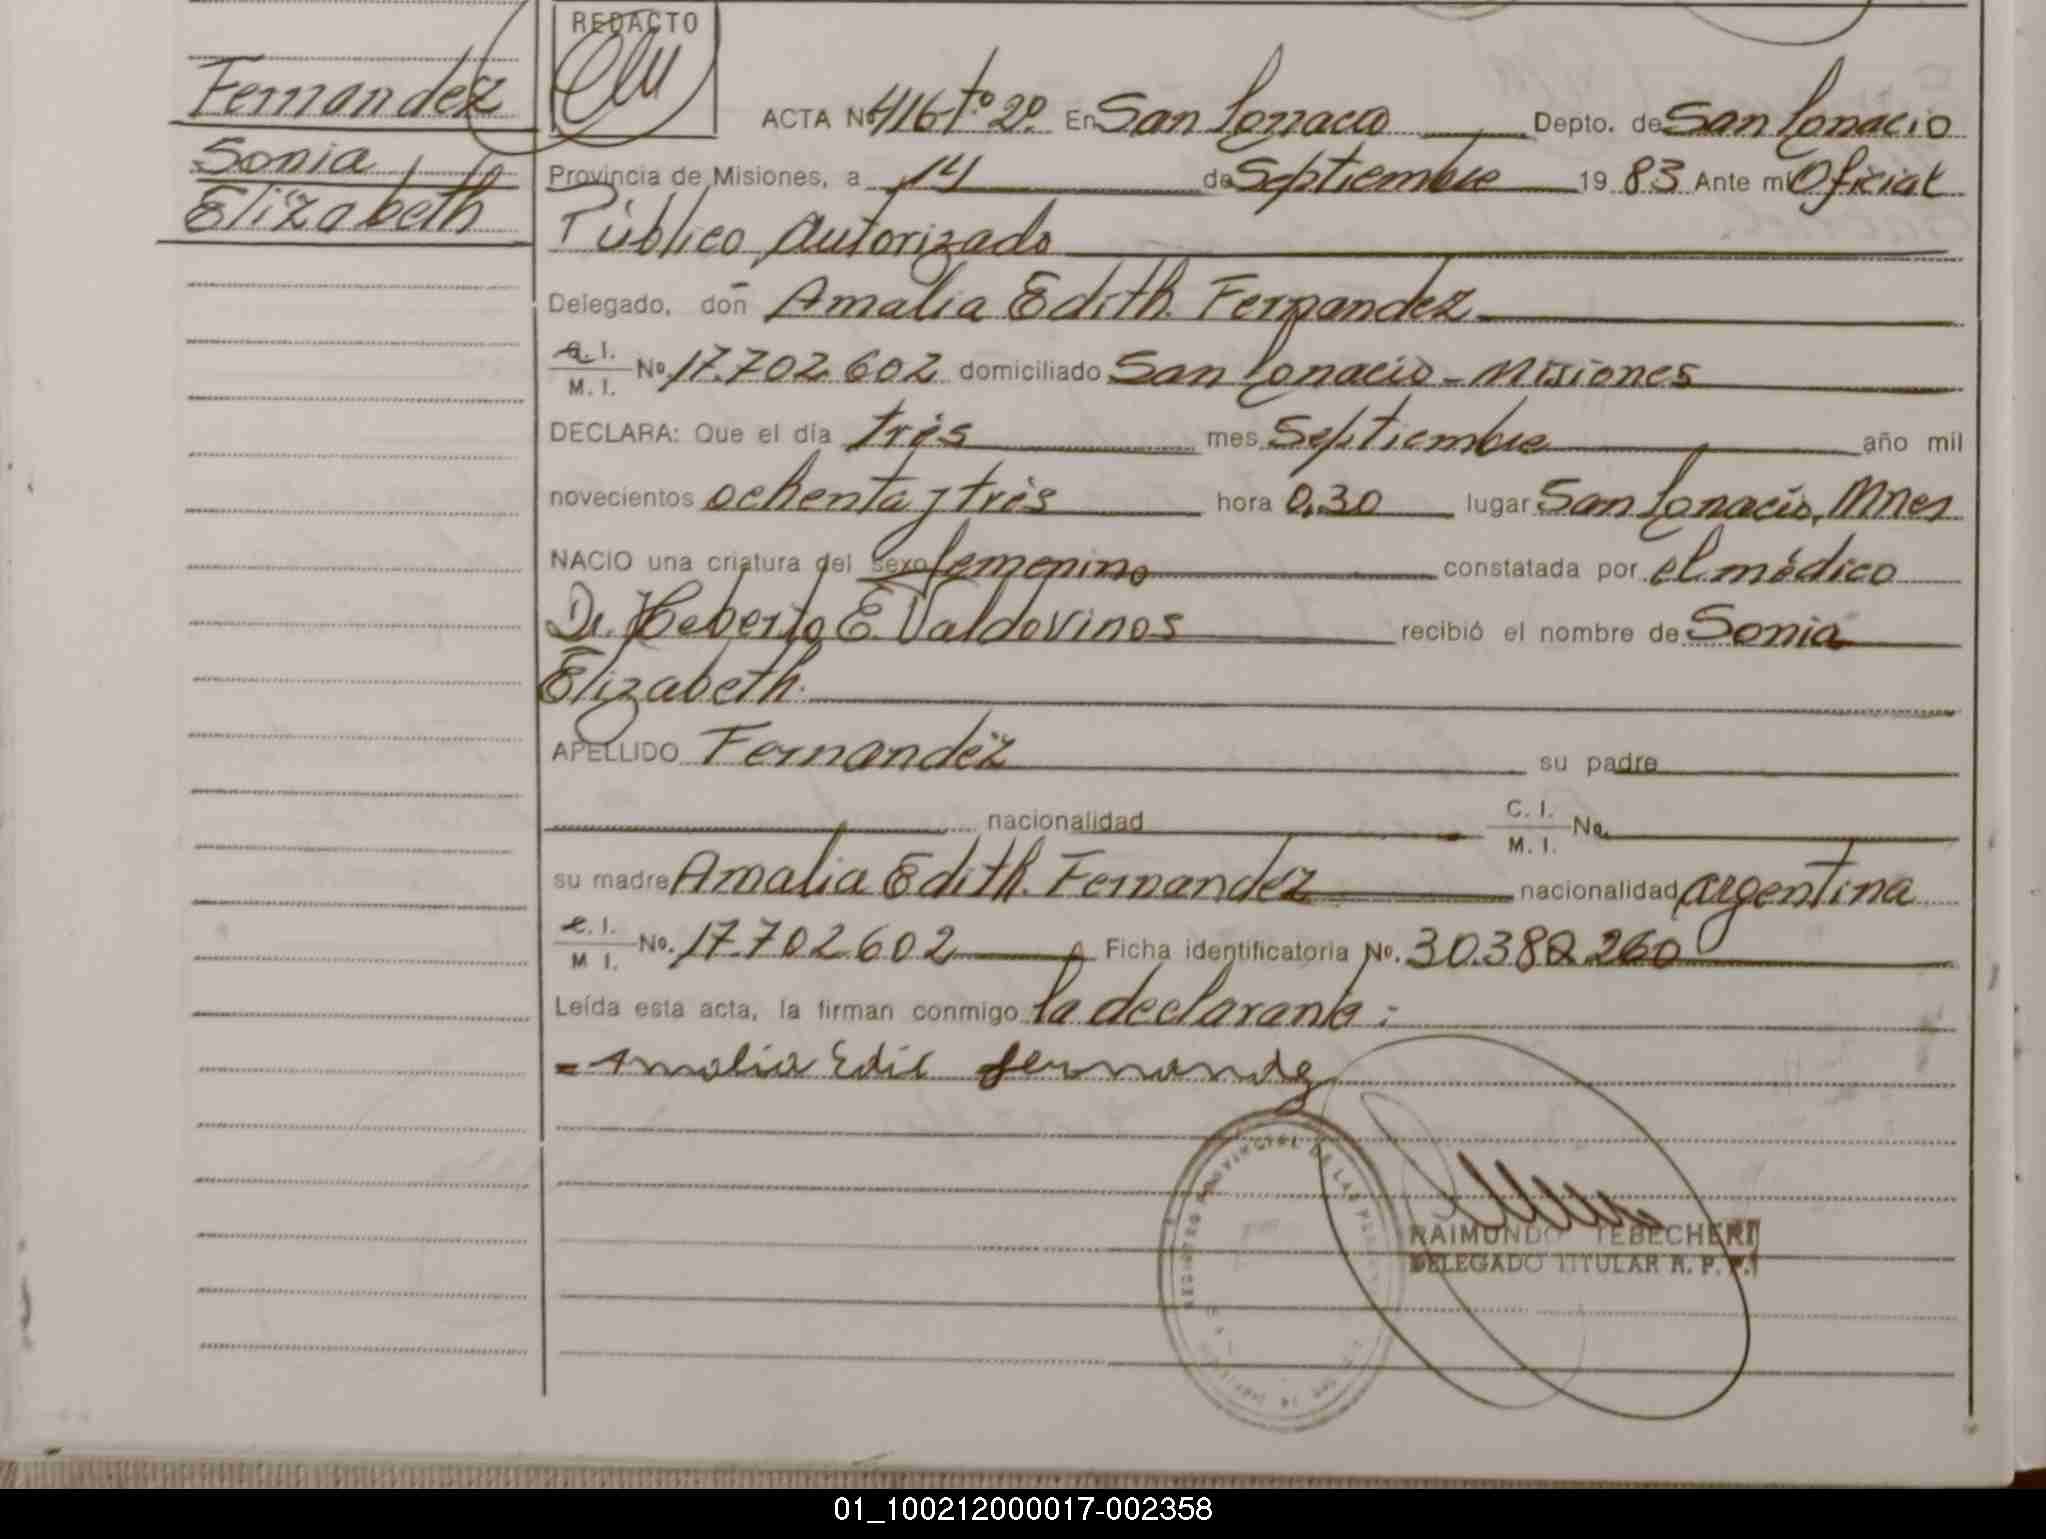 REDACTO
Fernandez
Sonia
Elizabeth
ACTA Nº 416 tº 2º. En San Ignacio Depto. de San Ignacio
Provincia de Misiones, a 14 de Septiembre 19 83 Ante mí Oficial
Público Autorizado
Delegado, don Amalia Edith. Fernandez
C. I.
M. I. No. 17.702.602 domiciliado San Ignacio - Misiones
DECLARA: Que el día trés mes Septiembre año mil
novecientos ochenta y trés hora 0,30 lugar San Ignacio, Mnes
NACIO una criatura del sexo femenino constatada por el médico
Dr. Heberto E. Valdovinos recibió el nombre de Sonia
Elizabeth.
APELLIDO Fernandez su padre
nacionalidad C. I.
M. I. No.
su madre Amalia Edith. Fernandez nacionalidad argentina
C. I.
M I. No. 17.702.602 Ficha identificatoria No. 30.382.260
Leída esta acta, la firman conmigo la declarante:
= Amalia Edit fernandez
REGISTRO PROVINCIAL DE LAS
RAIMUNDO TEBECHERI
DELEGADO TITULAR R. P. P.
01_100212000017-002358